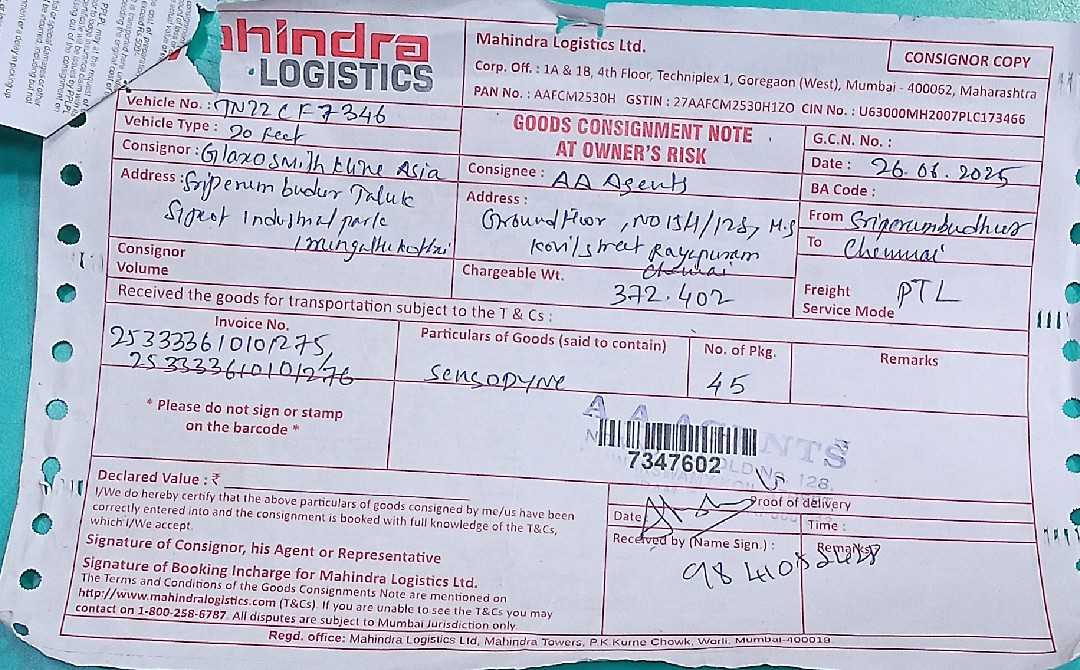 ahindra
LOGISTICS
Mahindra Logistics Ltd.
CONSIGNOR COPY
Corp. Off. : 1A & 1B, 4th Floor, Techniplex 1, Goregaon (West), Mumbai - 400062, Maharashtra
PAN No. : AAFCM2530H GSTIN : 27AAFCM2530H1ZO CIN No. : U63000MH2007PLC173466
Vehicle No. : TN22CF7346
Vehicle Type : 20 Feet
GOODS CONSIGNMENT NOTE
AT OWNER'S RISK
G.C.N. No. :
Date : 26.06.2025
BA Code :
Consignor : Glaxosmith Kline Asia
Address : Sriperumbudur Taluk
Sipcot Industrial park
Consignee : AA Agents
Address :
Ground Floor, NO 154/128, M.S
Kovil street Rayapuram
Chennai
From Sriperumbudhur
To Chennai
Consignor
Volume
Chargeable Wt.
372.402
Freight
Service Mode
PTL
Received the goods for transportation subject to the T & Cs :
Invoice No.
Particulars of Goods (said to contain)
No. of Pkg.
Remarks
253333610101275
253333610101276
SENSODYNE
45
* Please do not sign or stamp
on the barcode *
A A AGENTS
7347602
128,
Declared Value : ₹
I/We do hereby certify that the above particulars of goods consigned by me/us have been
correctly entered into and the consignment is booked with full knowledge of the T&Cs,
which I/We accept.
Signature of Consignor, his Agent or Representative
Signature of Booking Incharge for Mahindra Logistics Ltd.
The Terms and Conditions of the Goods Consignments Note are mentioned on
http://www.mahindralogistics.com (T&Cs). If you are unable to see the T&Cs you may
contact on 1-800-258-6787. All disputes are subject to Mumbai Jurisdiction only.
Proof of delivery
Date
Time :
Received by (Name Sign.) :
Remarks
Regd. office: Mahindra Logistics Ltd, Mahindra Towers, P.K.Kurne Chowk, Worli, Mumbai-400018.